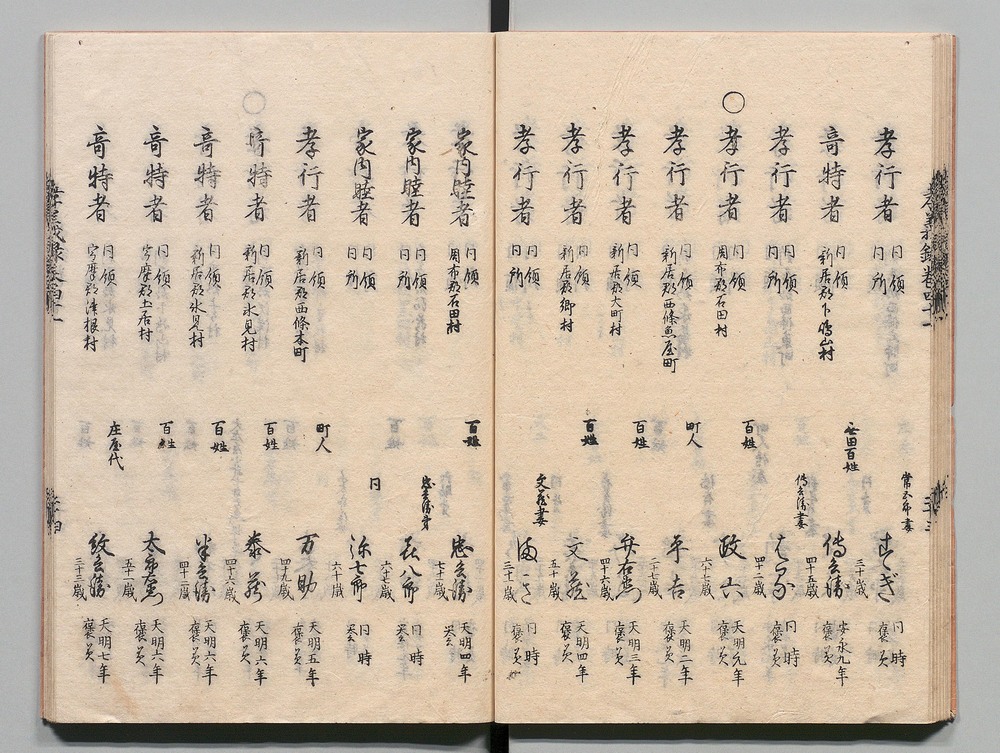 孝行者 同領 同所 常五郎妻 すぎ 三十歳 同時 褒美
奇特者 同領 新居郡下嶋山村 無田百姓 傳兵衛 四十五歳 安永九年 褒美
孝行者 同領 同所 傳兵衛妻 四十二歳 同時 褒美
○ 孝行者 同領 周布郡石田村 百姓 政六 六十七歳 天明元年 褒美
孝行者 同領 新居郡西條魚屋町 町人 平吉 二十七歳 天明二年 褒美
孝行者 同領 新居郡大町村 百姓 四十六歳 天明三年 褒美
孝行者 同領 新居郡郷村 百姓 文蔵 五十歳 天明四年 褒美
孝行者 同領 同所 文蔵妻 三十一歳 同時 褒美
孝義録巻四十一
家内睦者 同領 周布郡石田村 百姓 忠兵衛 七十二歳 天明四年 褒美
家内睦者 同領 同所 忠兵衛弟 喜八郎 六十七歳 同時 褒美
家内睦者 同領 同所 同 弥七郎 六十歳 同時 褒美
孝行者 同領 新居郡西條本町 町人 万助 四十九歳 天明五年 褒美
○ 奇特者 同領 新居郡氷見村 百姓 泰蔵 四十六歳 天明六年 褒美
奇特者 同領 新居郡氷見村 百姓 半兵衛 四十二歳 天明六年 褒美
奇特者 同領 宇摩郡土居村 百姓 五十一歳 天明六年 褒美
奇特者 同領 宇摩郡津根村 庄屋代 紋兵衛 三十三歳 天明七年 褒美
孝義録巻四十一